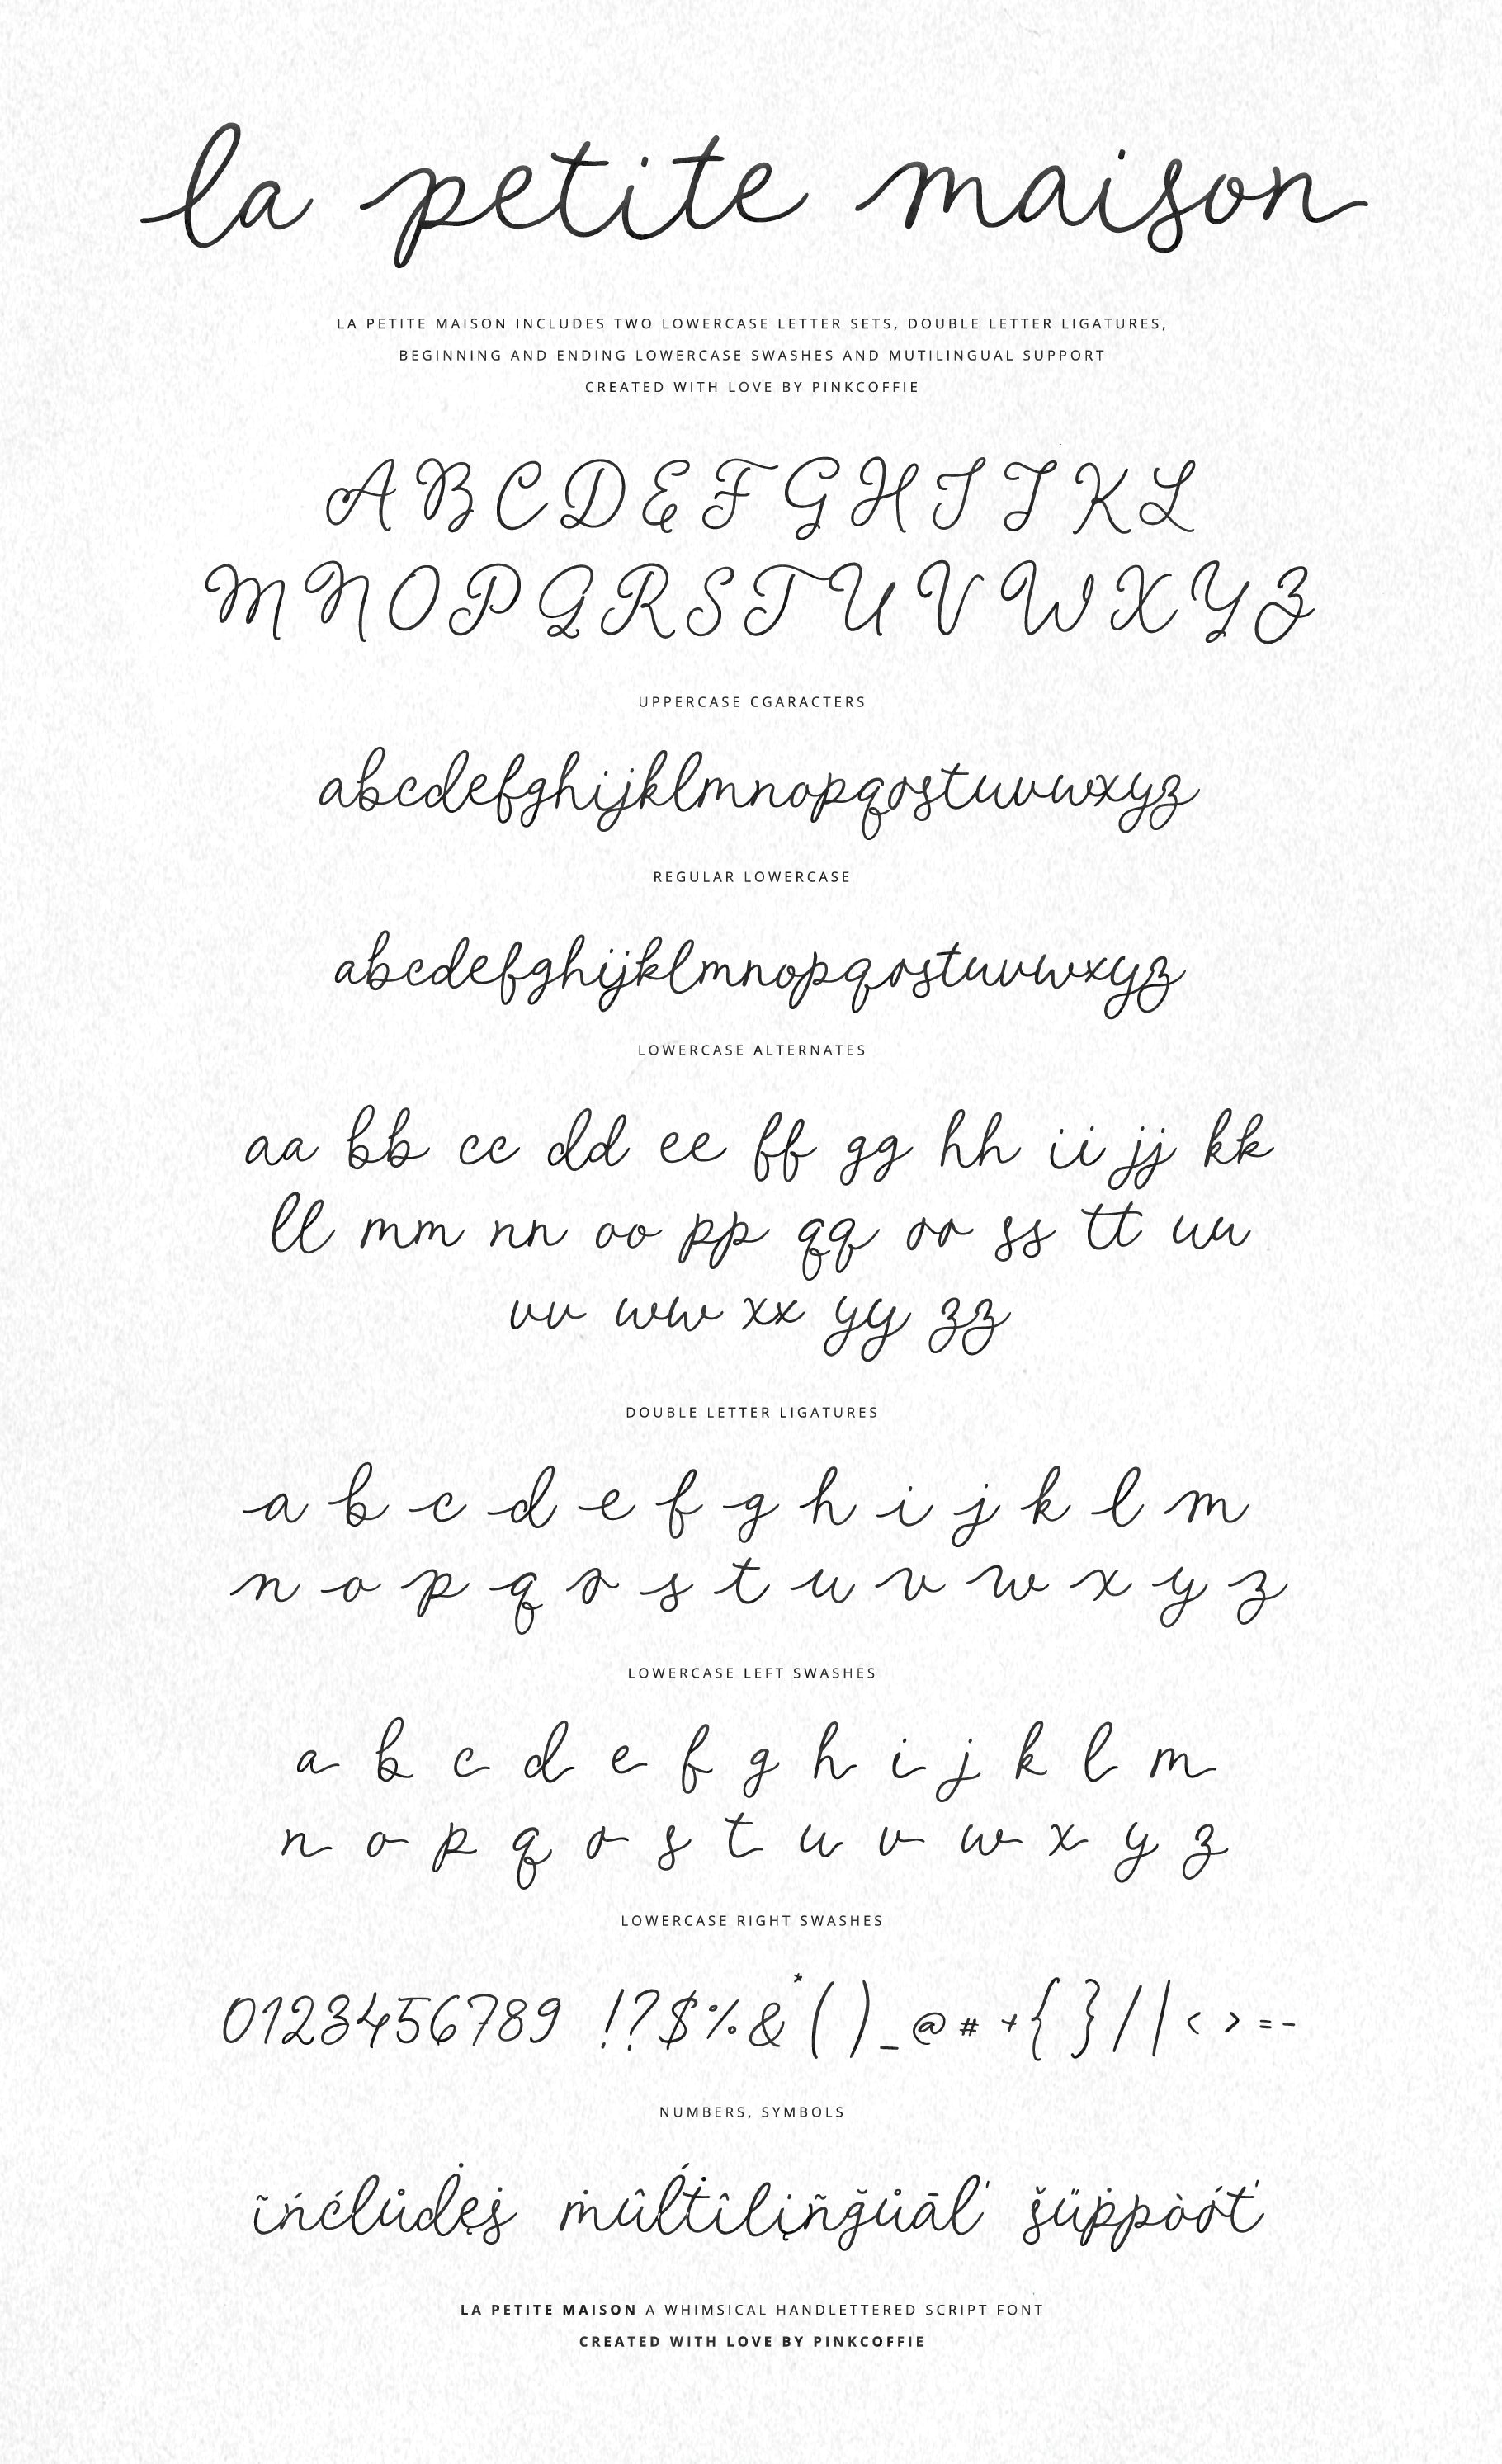 la petite maison
LA PETITE MAISON INCLUDES TWO LOWERCASE LETTER SETS, DOUBLE LETTER LIGATURES,
BEGINNING AND ENDING LOWERCASE SWASHES AND MUTILINGUAL SUPPORT
CREATED WITH LOVE BY PINKCOFFIE
A B C D E F G H I J K L
M N O P Q R S T U V W X Y Z
UPPERCASE CGARACTERS
abcdefghijklmnopqrstuvwxyz
REGULAR LOWERCASE
abcdefghijklmnopqrstuvwxyz
LOWERCASE ALTERNATES
aa bb cc dd ee ff gg hh ii jj kk
ll mm nn oo pp qq rr ss tt uu
vv ww xx yy zz
DOUBLE LETTER LIGATURES
a b c d e f g h i j k l m
n o p q r s t u v w x y z
LOWERCASE LEFT SWASHES
a b c d e f g h i j k l m
n o p q r s t u v w x y z
LOWERCASE RIGHT SWASHES
0123456789 !?$%&*( )_@# +{ }/|< > = -
NUMBERS, SYMBOLS
ĩńćlůdẹṡ ṁûĺṫîlįñğůāľ šüṗpòŕť
LA PETITE MAISON A WHIMSICAL HANDLETTERED SCRIPT FONT
CREATED WITH LOVE BY PINKCOFFIE